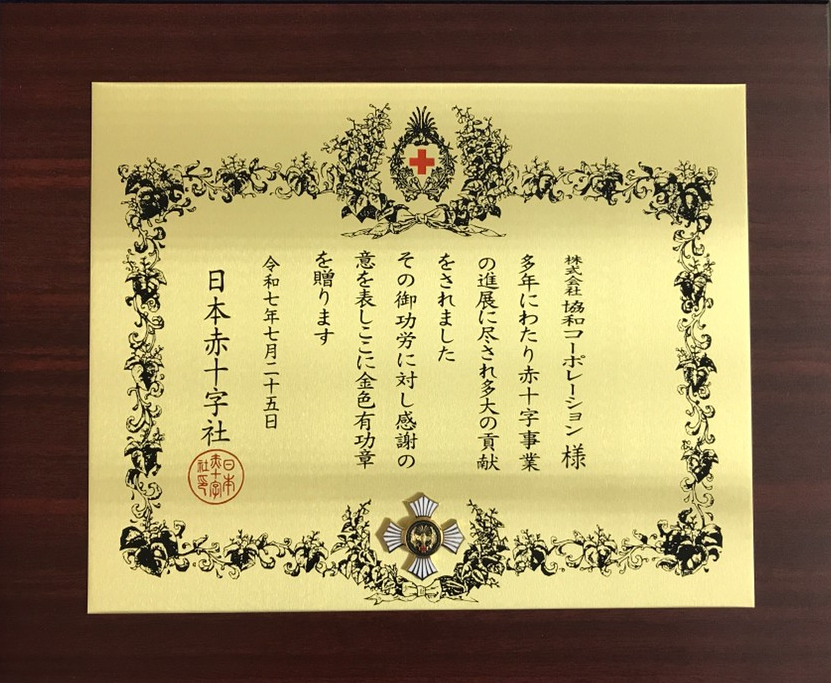 株式会社 協和コーポレーション 様
多年にわたり赤十字事業
の進展に尽され多大の貢献
をされました
その御功労に対し感謝の
意を表しここに金色有功章
を贈ります
令和七年七月二十五日
日本赤十字社
日本
赤十字
社印